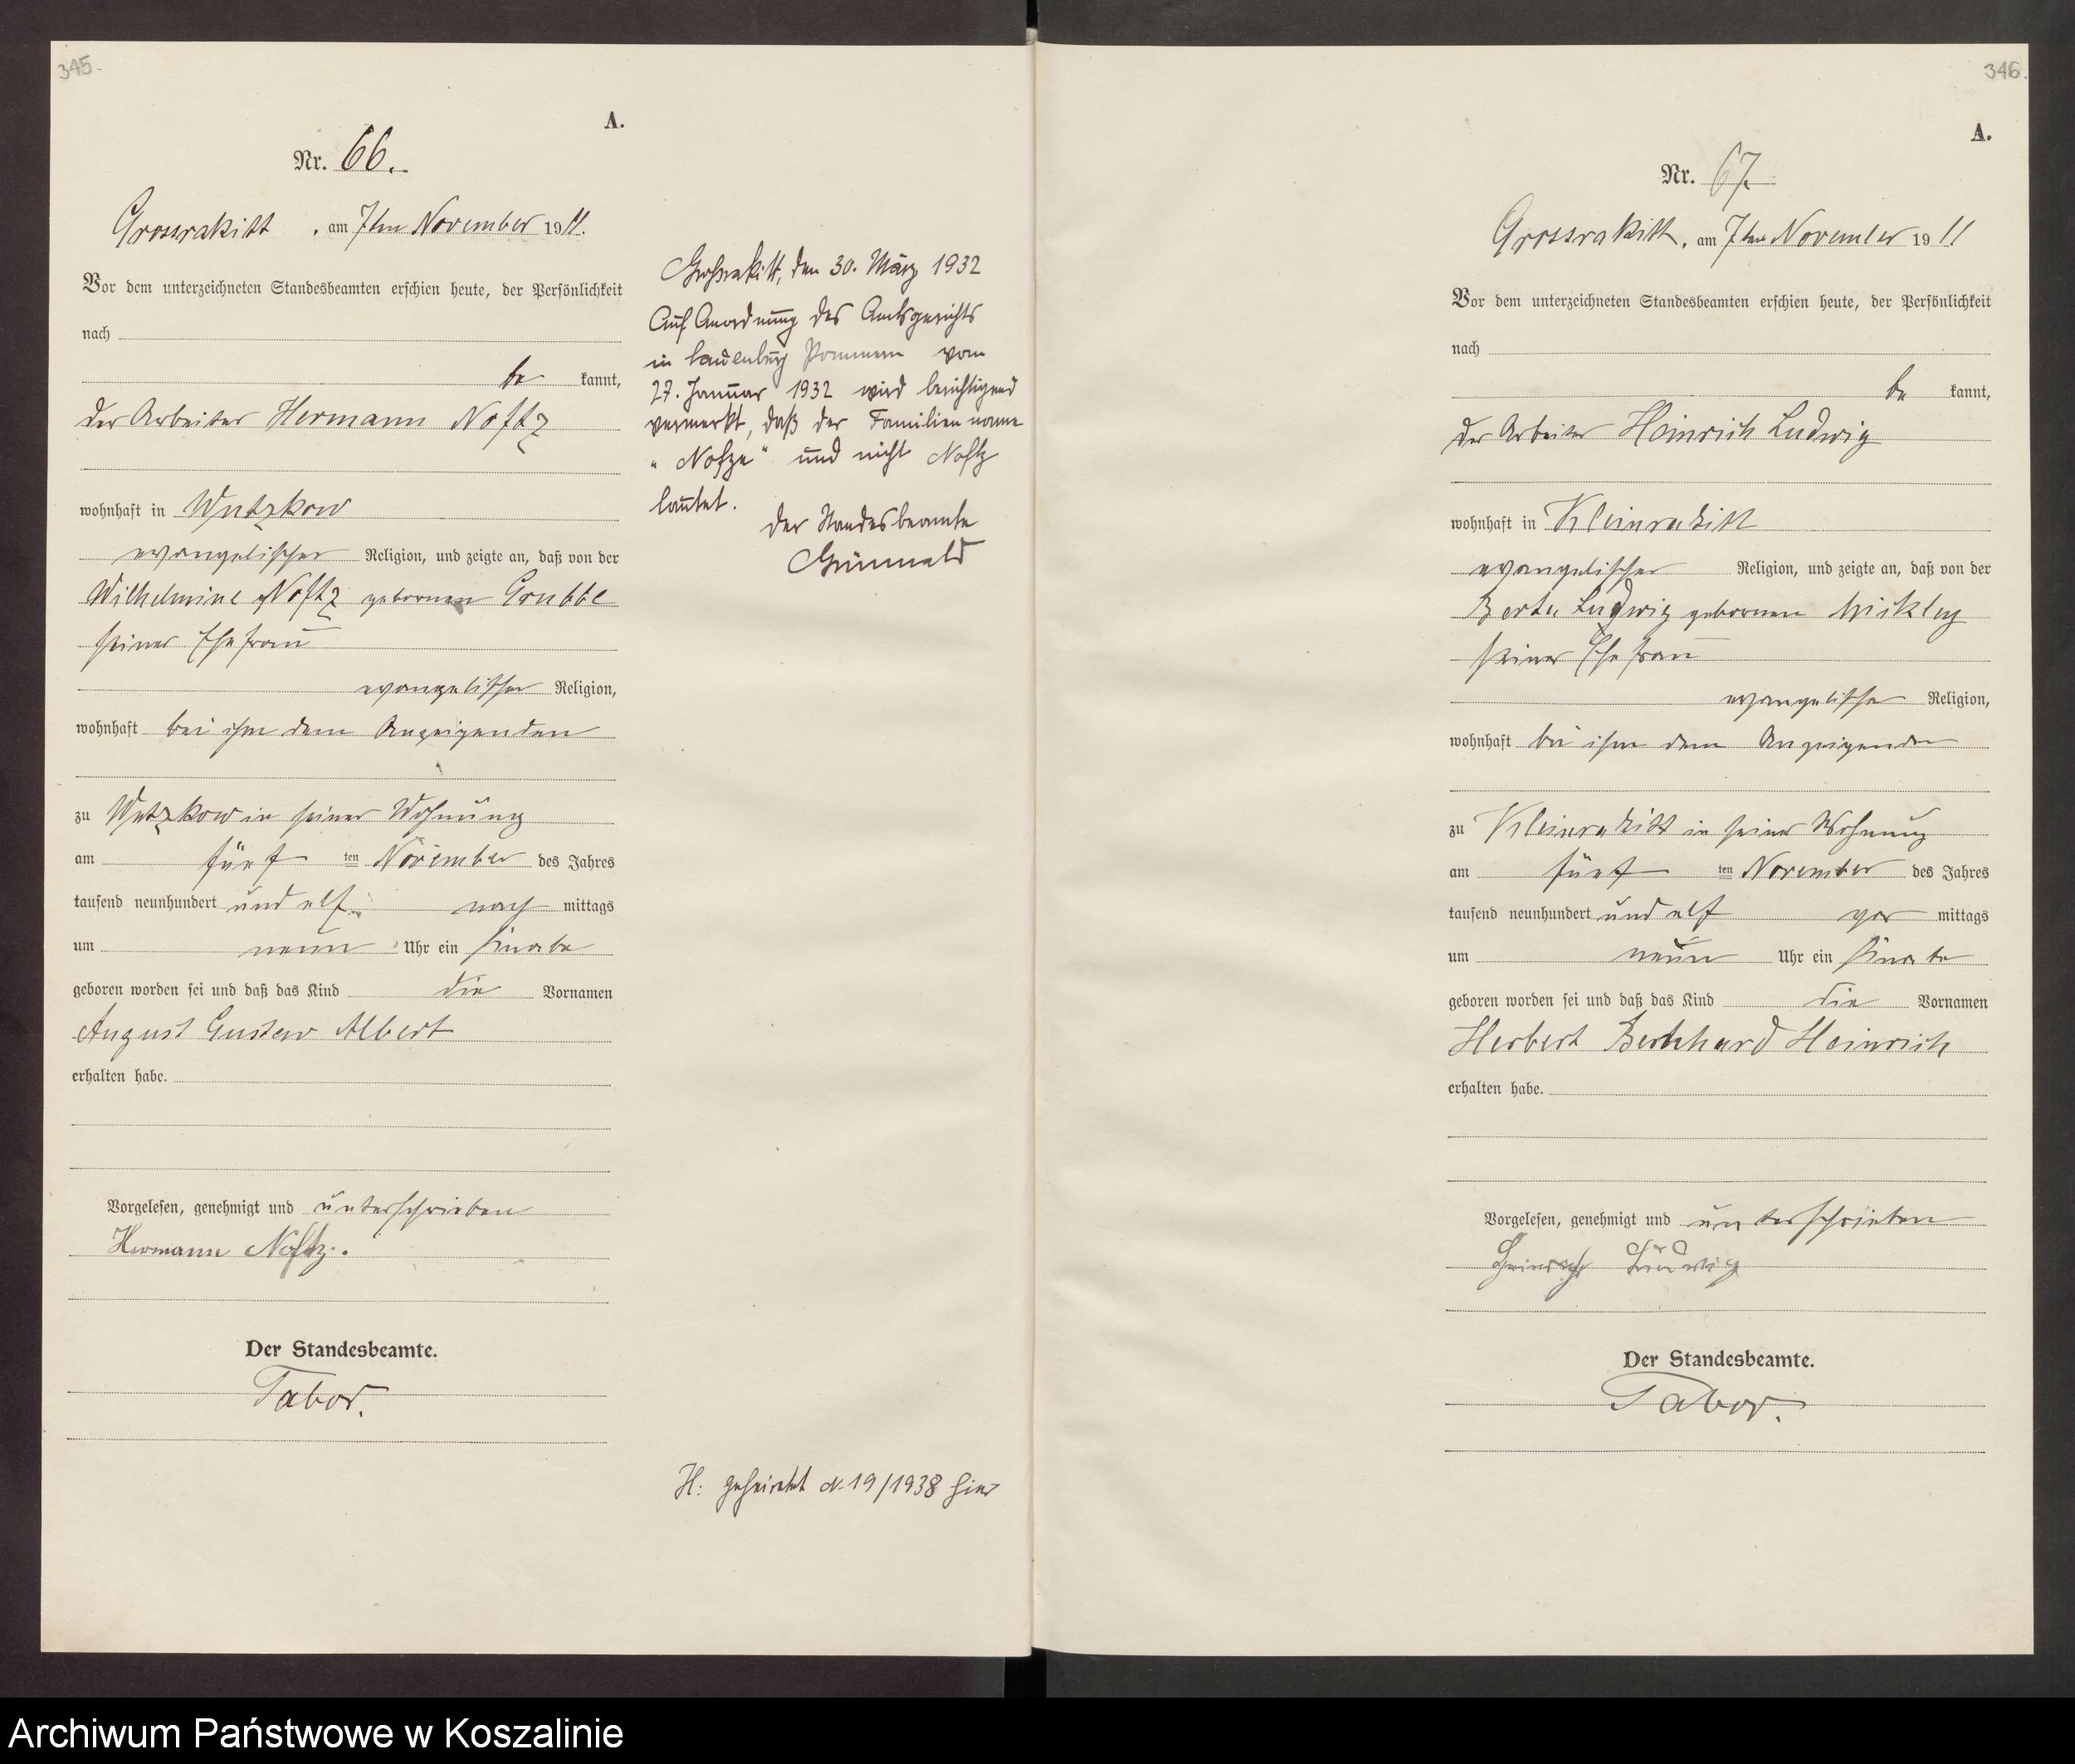 345.
A.
Nr. 66.
Grossrakitt, am 7ten November 1911.
Vor dem unterzeichneten Standesbeamten erschien heute, der Persönlichkeit
nach
be kannt,
der Arbeiter Hermann Noftz
wohnhaft in Wutzkow
evangelischer Religion, und zeigte an, daß von der
Wilhelmine Noftz geborenen Grubbe
seiner Ehefrau
evangelischer Religion,
wohnhaft bei ihm dem Anzeigenden
zu Wutzkow in seiner Wohnung
am fünf ten November des Jahres
tausend neunhundert und elf nach mittags
um neun Uhr ein Knabe
geboren worden sei und daß das Kind die Vornamen
August Gustav Albert
erhalten habe.
Vorgelesen, genehmigt und unterschrieben
Hermann Noftz.
Der Standesbeamte.
Tabor.
Großrakitt, den 30. März 1932
Auf Anordnung des Amtsgerichts
in Lauenburg Pommern vom
27. Januar 1932 wird berichtigend
vermerkt, daß der Familienname
"Nofze" und nicht Noftz
lautet.
Der Standesbeamte
Grünwald
H: geheiratet N. 19/1938 hier
346.
A.
Nr. 67.
Grossrakitt, am 7ten November 1911
Vor dem unterzeichneten Standesbeamten erschien heute, der Persönlichkeit
nach
be kannt,
der Arbeiter Heinrich Ludwig
wohnhaft in Kleinrakitt
evangelischer Religion, und zeigte an, daß von der
Berta Ludwig geborenen Mickley
seiner Ehefrau
evangelischer Religion,
wohnhaft bei ihm dem Anzeigenden
zu Kleinrakitt in seiner Wohnung
am fünf ten November des Jahres
tausend neunhundert und elf vor mittags
um neun Uhr ein Knabe
geboren worden sei und daß das Kind die Vornamen
Herbert Bernhard Heinrich
erhalten habe.
Vorgelesen, genehmigt und unterschrieben
Heinrich Ludwig
Der Standesbeamte.
Tabor.
Archiwum Państwowe w Koszalinie